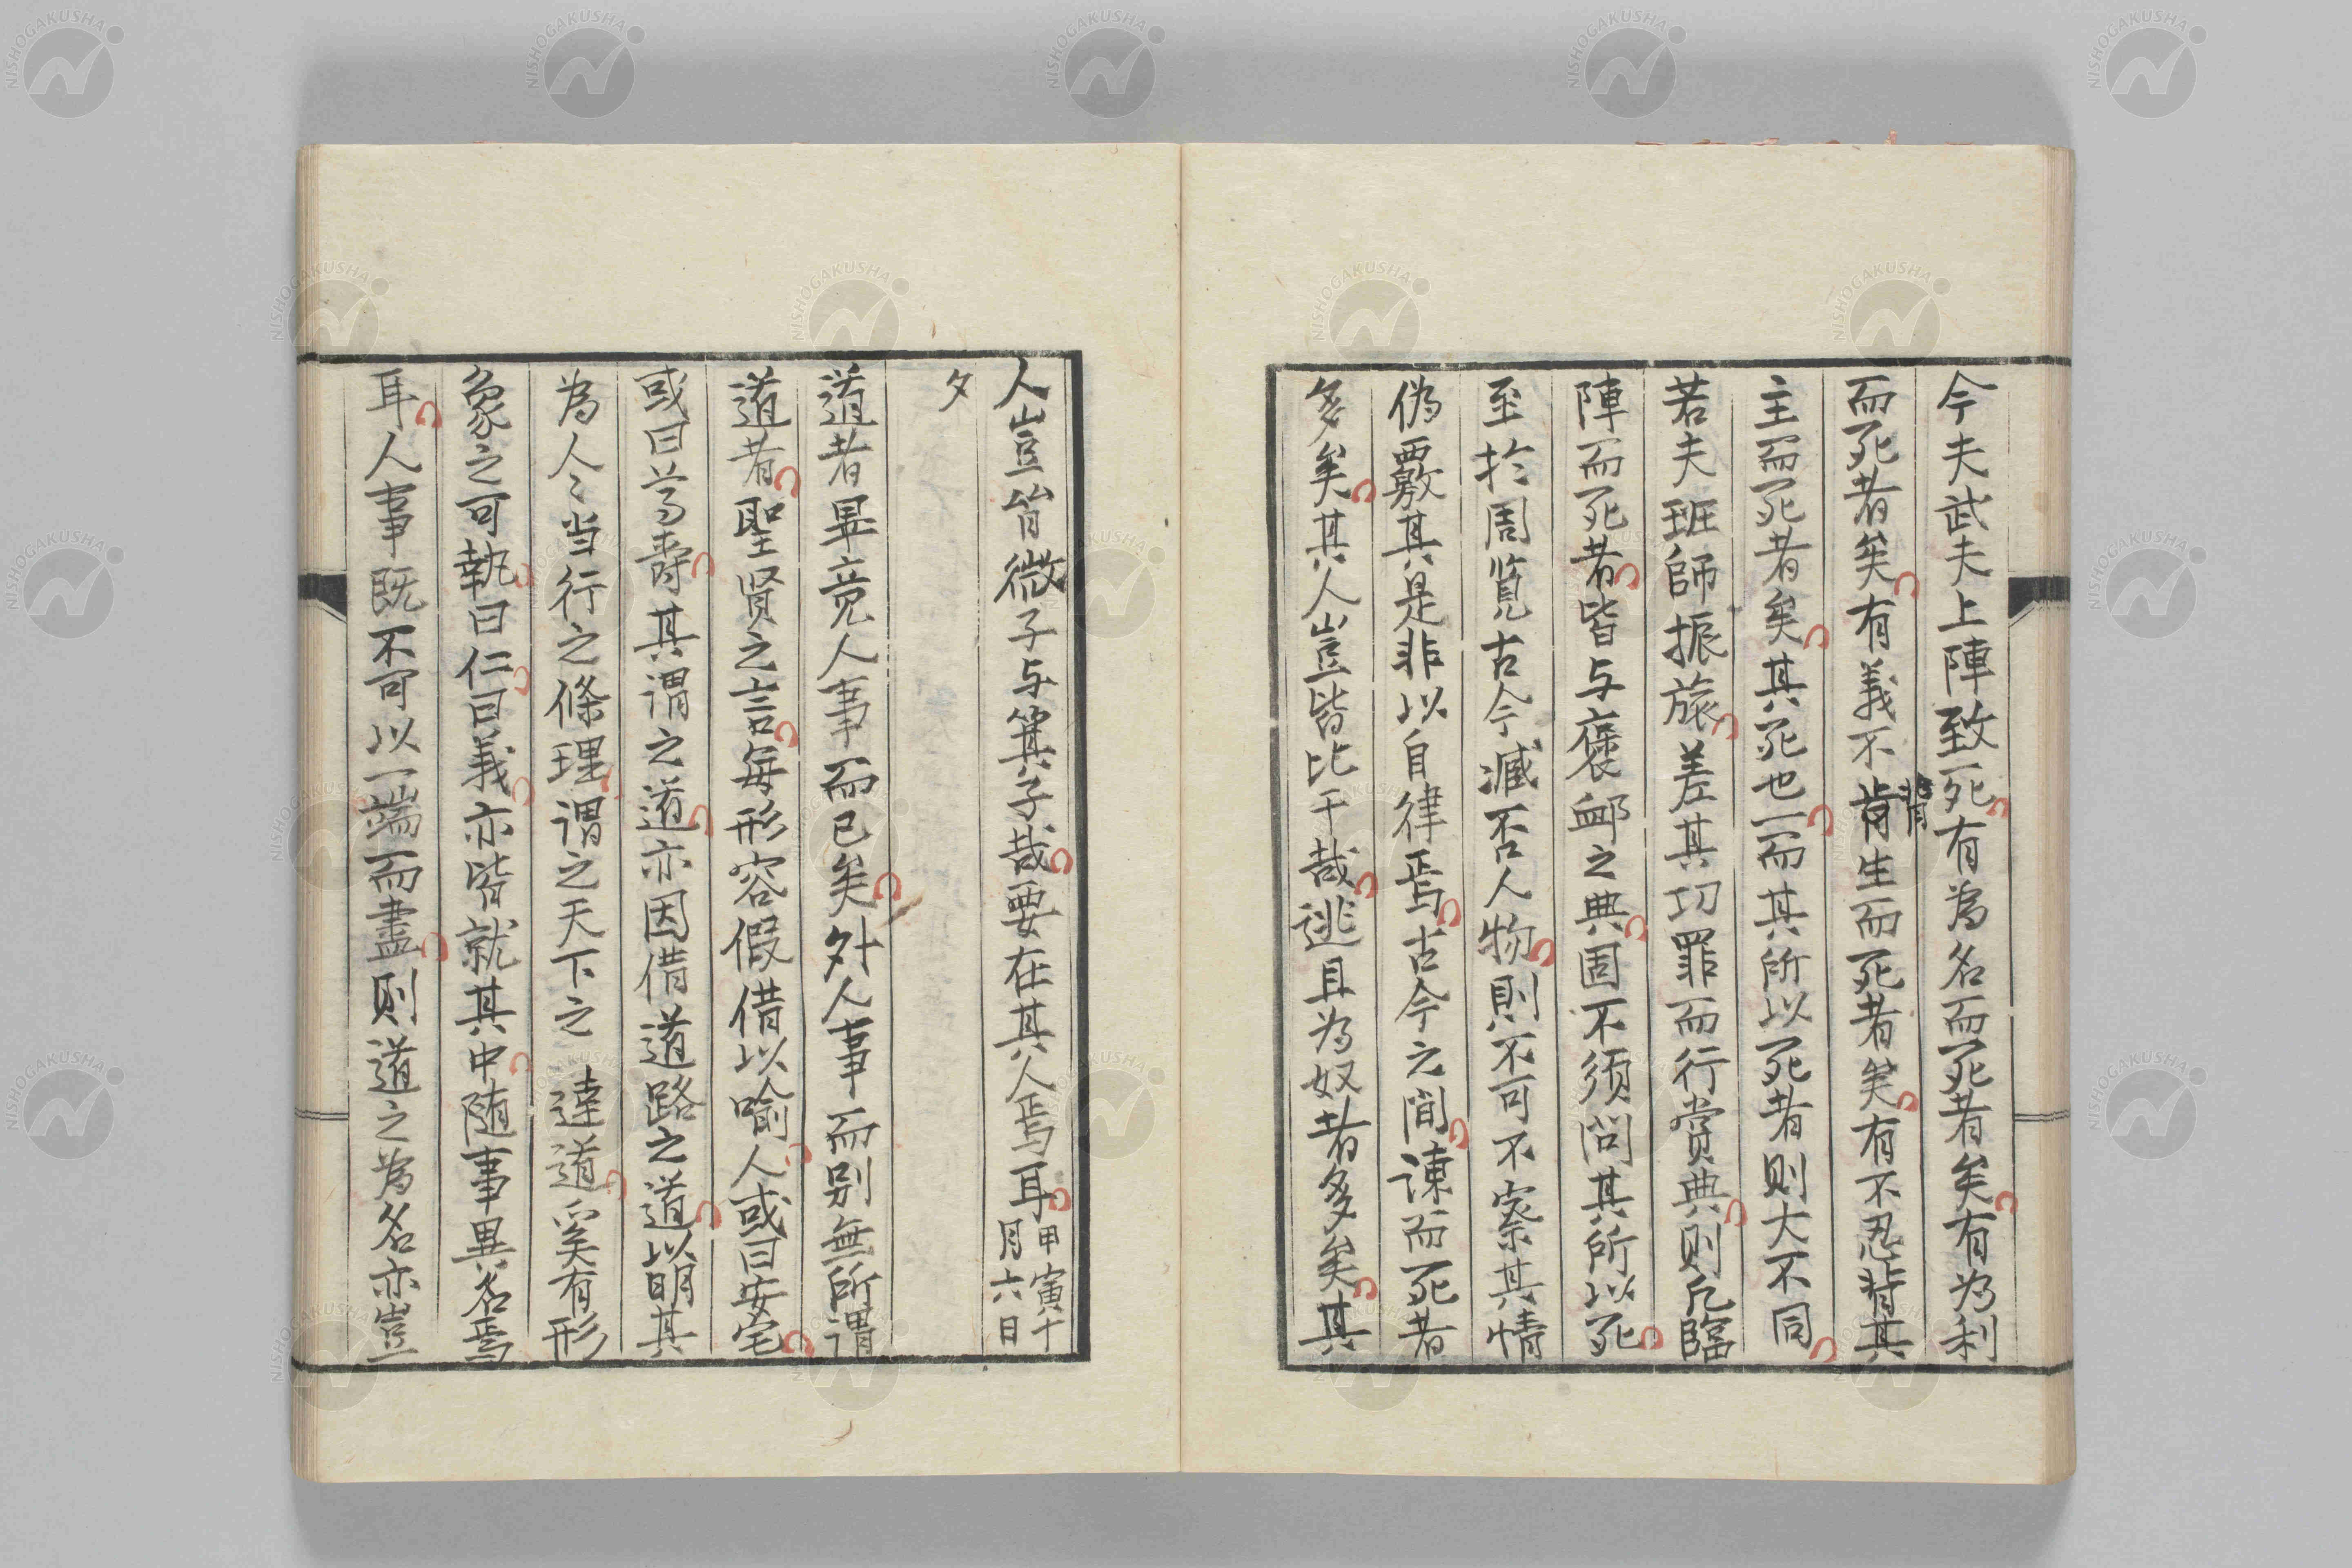 今夫武夫上陣致死有為名而死者矣有為利
而死者矣有義不肯生而死者矣有不忍背其
背
主而死者矣其死也一而其所以死者則大不同
若夫班師振旅差其功罪而行賞典則凡臨
陣而死者皆与褒衈之典固不須問其所以死
至於周覧古今臧否人物則不可不察其情
偽覈其是非以自律焉古今之間諌而死者
多矣其人豈皆比干哉逃且為奴者多矣其
人豈皆微子与箕子哉要在其人焉耳
甲寅十
月六日
夕
道者畢竟人事而已矣外人事而別無所謂
道者聖賢之言毎形容假借以喻人或曰安宅
或曰為壽其謂之道亦因借道路之道以明其
為人々当行之條理謂之天下之達道奚有形
象之可執曰仁曰義亦皆就其中随事異名焉
耳人事既不可以一端而盡則道之為名亦豈
NISHOGAKUSHA